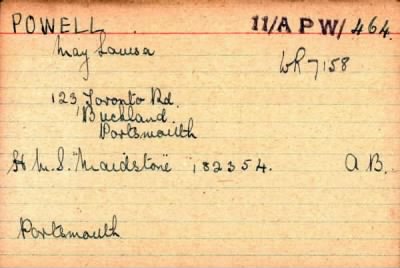 POWELL 11/A P W/ 464.
May Louisa WR 7158
123, Toronto Rd.
Buckland.
Portsmouth
H M. S. "Maidstone" 182354. A B.
Portsmouth